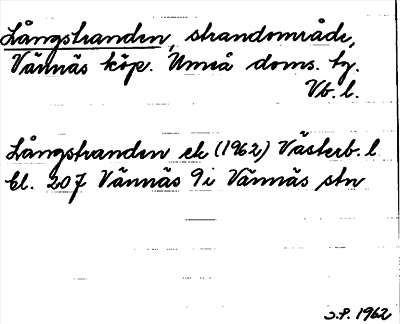 Långstranden, strandområde,
Vännäs köp. Umeå doms. hg.
Vb. l.
Långstranden ek (1962) Västerb. l.
bl. 207 Vännäs 9i Vännäs stn
S.P. 1962